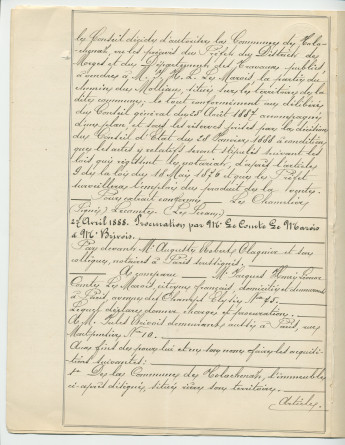 le Conseil décide d'autoriser la Commune de
vu les préavis du Préfet du District de
Morges et du Département des Travaux publics,
à vendre à M. J. H. L. Le Marois, la partie du
chemin du Molliau, située sur le territoire de la
dite commune; le tout conformément au délibéré
du Conseil général du 25 Août 1887 accompagné
d'un plan et sous les réserves faites par la décision
du Conseil d'Etat du 28 Janvier 1888 à condition
que les actes y relatifs seront stipulés suivant les
lois qui régissent les notariats, d'après l'article
2 de la loi du 18 Mai 1876 et que le Préfet
surveillera l'emploi du produit de la vente.
Pour extrait conforme Le Chancelier
(Signé) Lecomte (Le Sceau)
27 Avril 1888. Procuration par Mr Le Comte Le Marois
à Mr Brivois.
Par devant Mr Auguste et son
collègue, notaires à Paris soussignés.
A comparu M. Jacques Henri
Comte Le Marois, citoyen français, domicilié et demeurant
à Paris, avenue des Champs Elysées No
Lequel déclare donner charge et procuration,
à M. Jules Brivois demeurant aussi à Paris rue
No 10.
Aux fins de pour lui et en son nom faire les acquisi-
tions suivantes:
1o De la Commune de l'immeuble
ci-après désigné, situé rière son territoire.
Articles.